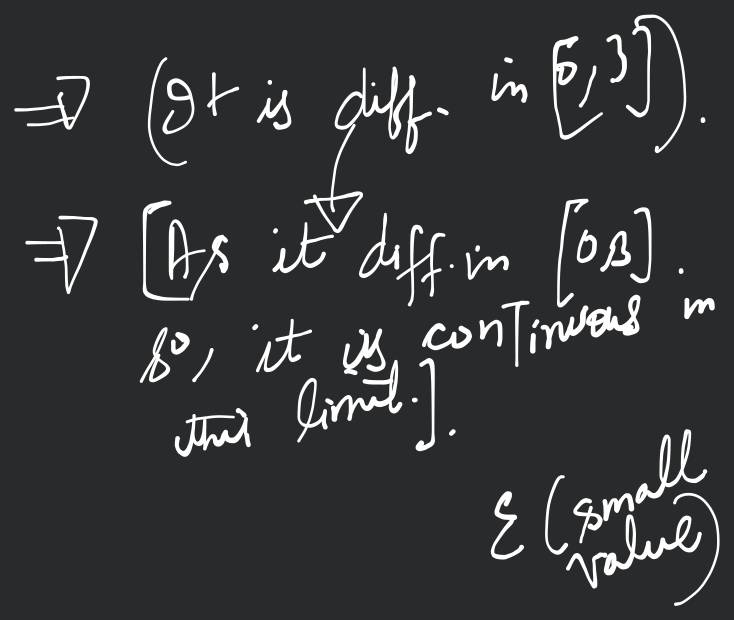 ⇒ (It is diff. in [0,3]).
⇒ [As it diff. in [0,3].
so, it is continuous in
this limit.].
ε (small
value)